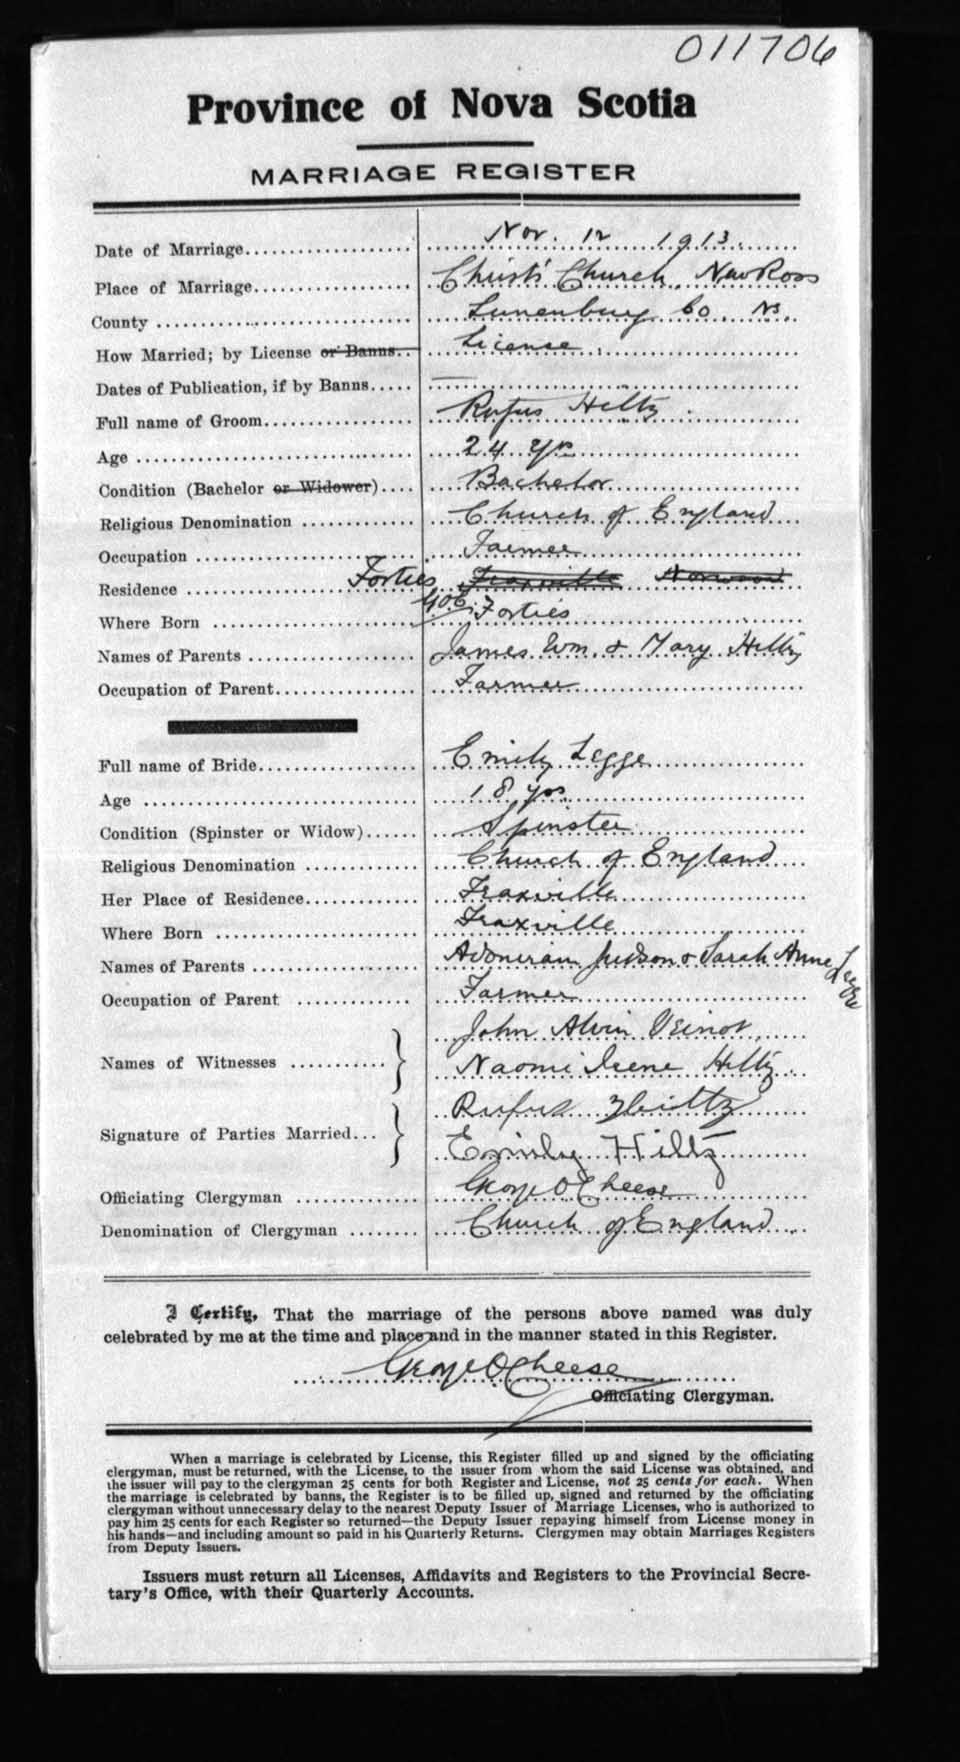 011706
Province of Nova Scotia
MARRIAGE REGISTER
Date of Marriage Nov. 12 1913
Place of Marriage Christ's Church, New Ross
County Lunenburg Co. NS.
How Married; by License or Banns License
Dates of Publication, if by Banns —
Full name of Groom Rufus Hiltz
Age 24 yrs
Condition (Bachelor or Widower) Bachelor
Religious Denomination Church of England
Occupation Farmer
Residence Forties Fraxville Norwood
G.O.C.
Where Born Forties
Names of Parents James Wm. & Mary Hiltz
Occupation of Parent Farmer
Full name of Bride Emily Legge
Age 18 yrs
Condition (Spinster or Widow) Spinster
Religious Denomination Church of England
Her Place of Residence Fraxville
Where Born Fraxville
Names of Parents Adoniram Judson & Sarah Anne Legge
Occupation of Parent Farmer
Names of Witnesses John Alvin Veinot
Naomi Irene Hiltz
Signature of Parties Married Rufus Hiltz
Emily Hiltz
Officiating Clergyman George O Cheese
Denomination of Clergyman Church of England
I Certify, That the marriage of the persons above named was duly
celebrated by me at the time and place and in the manner stated in this Register.
George O Cheese
Officiating Clergyman.
When a marriage is celebrated by License, this Register filled up and signed by the officiating
clergyman, must be returned, with the License, to the issuer from whom the said License was obtained, and
the issuer will pay to the clergyman 25 cents for both Register and License, not 25 cents for each. When
the marriage is celebrated by banns, the Register is to be filled up, signed and returned by the officiating
clergyman without unnecessary delay to the nearest Deputy Issuer of Marriage Licenses, who is authorized to
pay him 25 cents for each Register so returned—the Deputy Issuer repaying himself from License money in
his hands—and including amount so paid in his Quarterly Returns. Clergymen may obtain Marriages Registers
from Deputy Issuers.
Issuers must return all Licenses, Affidavits and Registers to the Provincial Secre-
tary's Office, with their Quarterly Accounts.